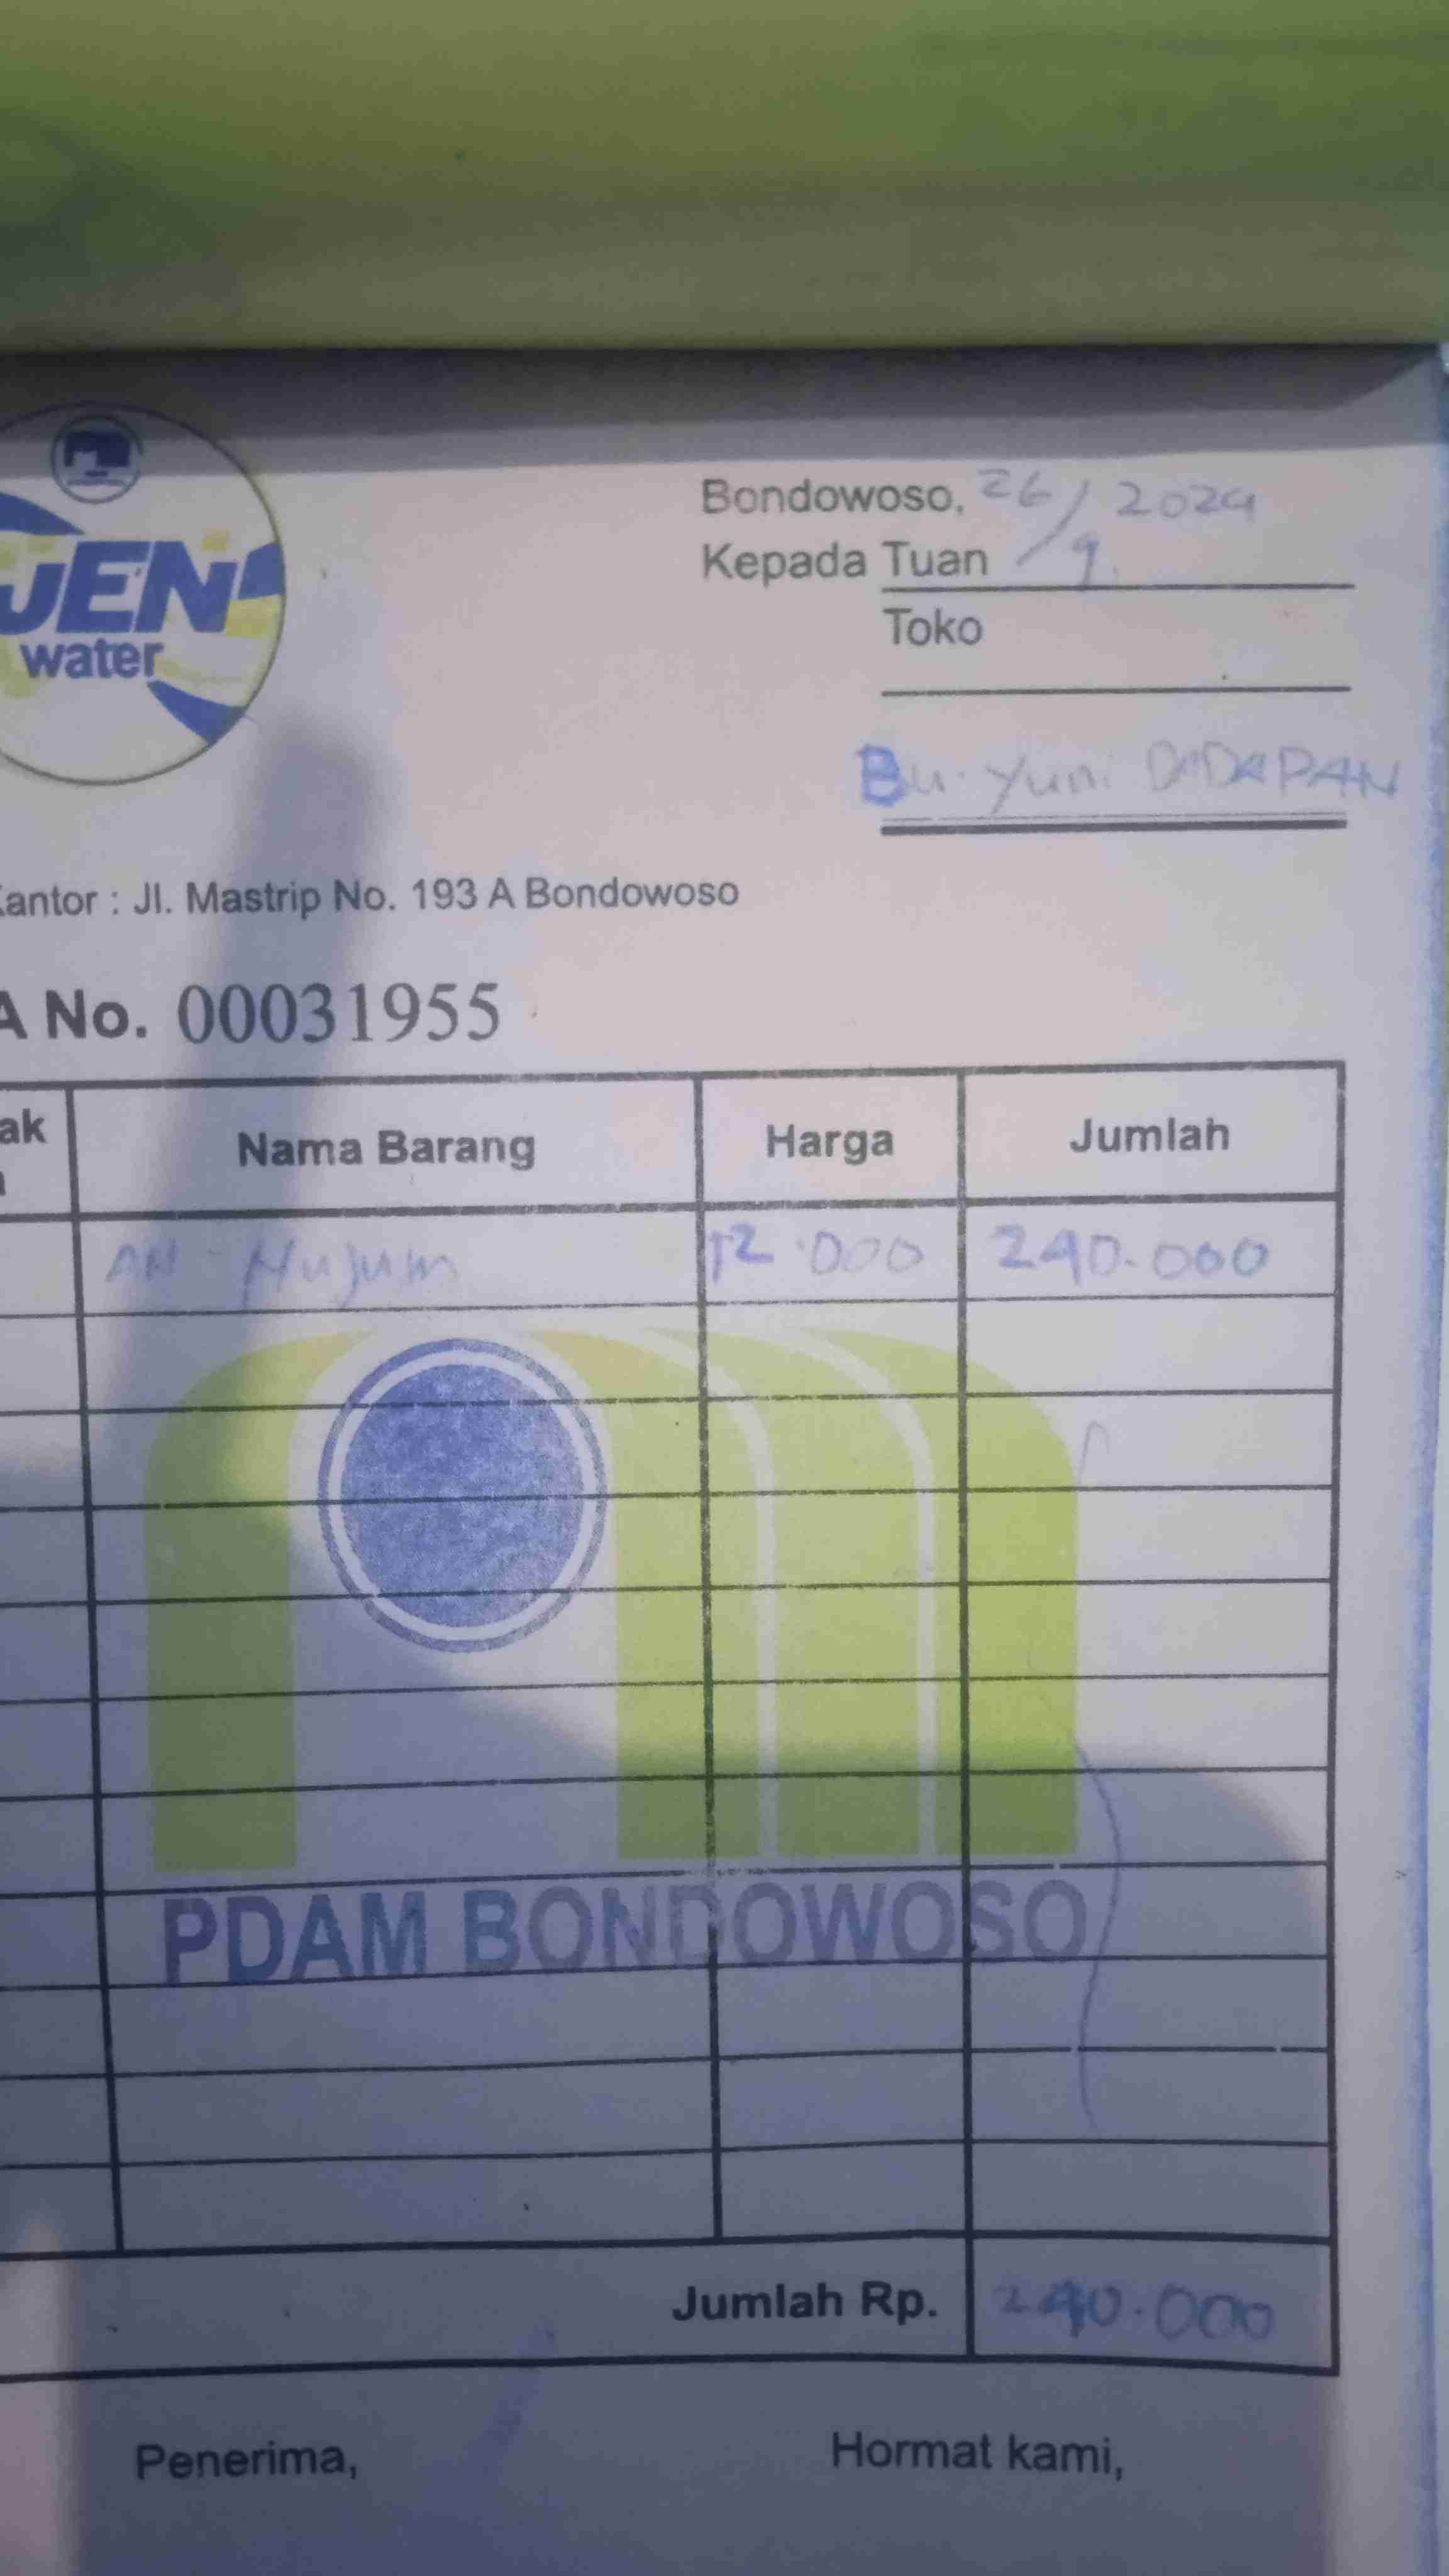 JEN
water
Bondowoso, 26/9 2024
Kepada Tuan
Toko
Bu. Yuni DADAPAN
Kantor : Jl. Mastrip No. 193 A Bondowoso
A No. 00031955
ak Nama Barang Harga Jumlah
AN Nujum 12.000 240.000
PDAM BONDOWOSO
Jumlah Rp. 240.000
Penerima, Hormat kami,